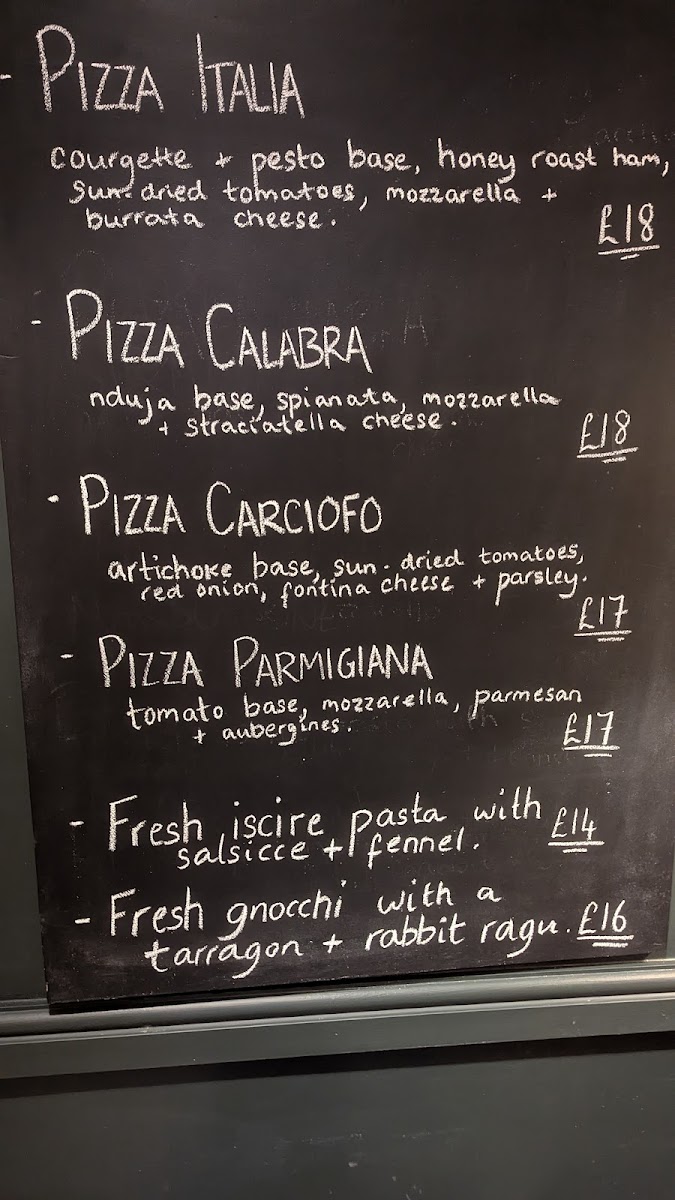 - PIZZA ITALIA
courgette + pesto base, honey roast ham,
sun-dried tomatoes, mozzarella +
burrata cheese.
£18
- PIZZA CALABRA
nduja base, spianata, mozzarella
+ straciatella cheese.
£18
- PIZZA CARCIOFO
artichoke base, sun-dried tomatoes,
red onion, fontina cheese + parsley.
£17
- PIZZA PARMIGIANA
tomato base, mozzarella, parmesan
+ aubergines.
£17
- Fresh iscire pasta with £14
salsicce + fennel.
- Fresh gnocchi with a
tarragon + rabbit ragu. £16